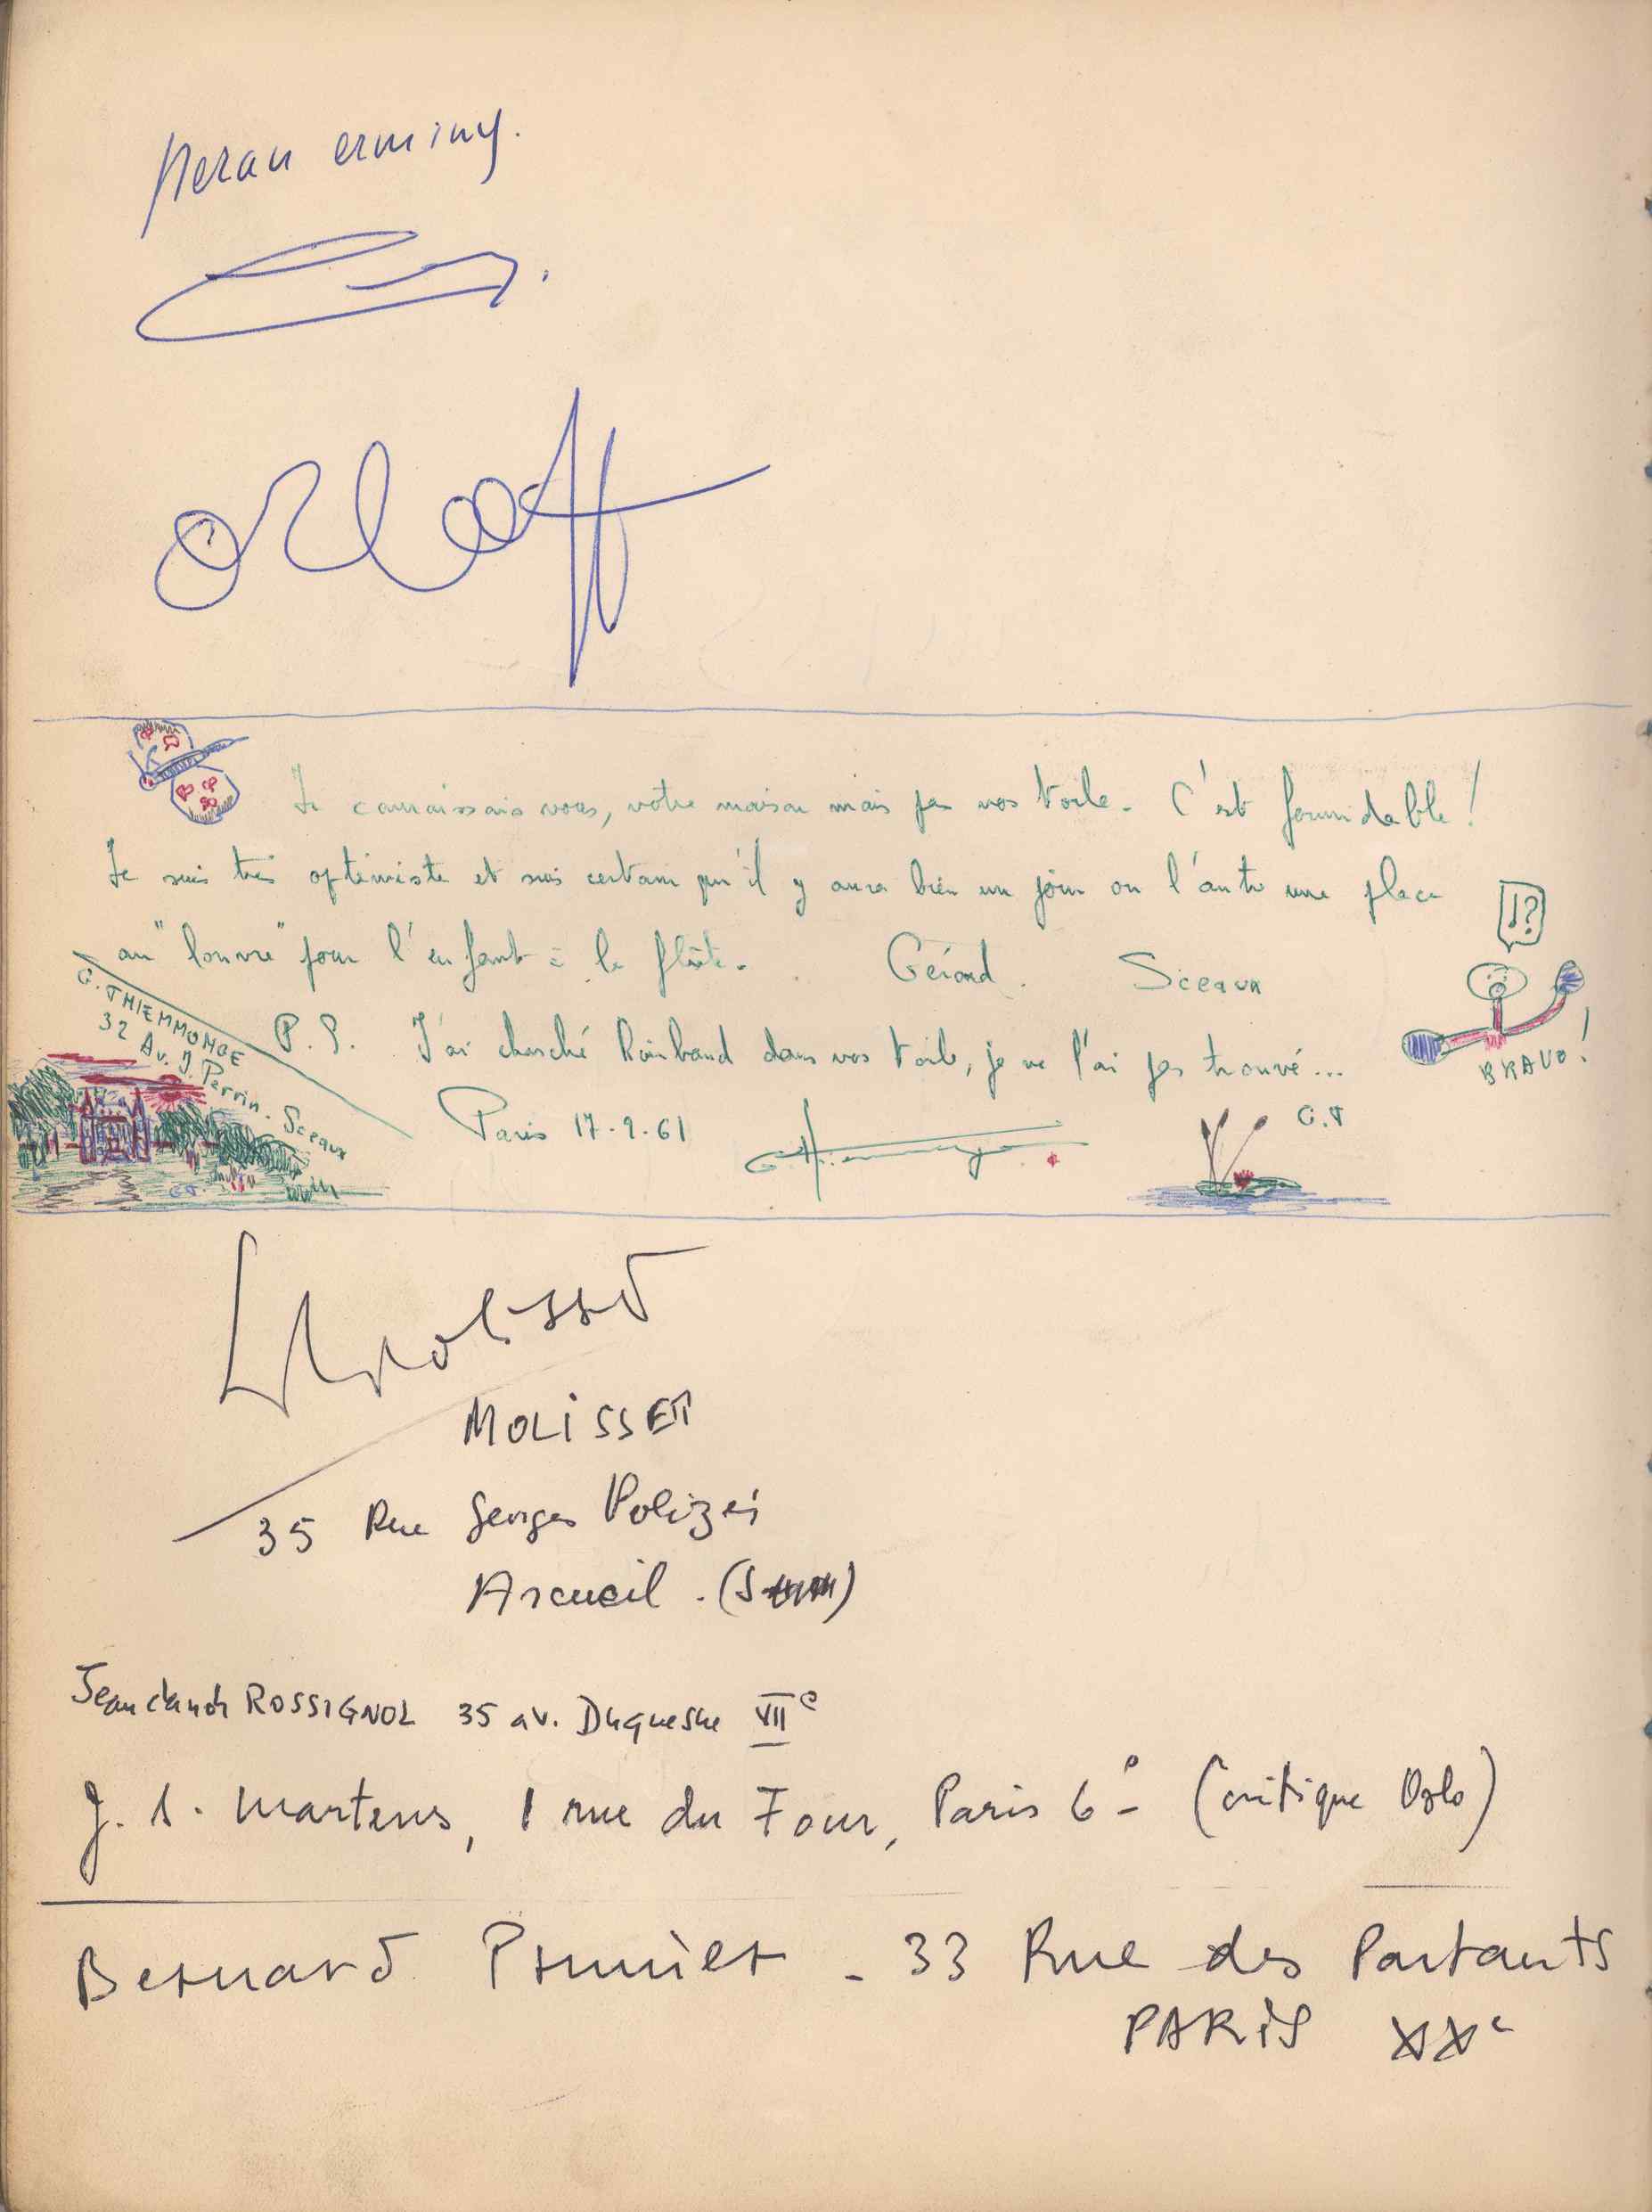 Peran erminy.
Orloff
Je connaissais vous, votre maison mais pas vos toile. C'est formidable!
Je suis très optimiste et suis certain qu'il y aura bien un jour ou l'autre une place
au "louvre" pour l'enfant à la flûte. Gérard. Sceaux
!?
BRAVO!
G. THIEMMONGE
32 Av. J. Perrin. Sceaux
P.S. J'ai cherché Rimbaud dans vos toile, je ne l'ai pas trouvé...
G.T
Paris 17.2.61
MOLISSET
35 Rue Georges Polizei
Arcueil. (S
Jean claude ROSSIGNOL 35 av. Duquesne VIIe
J. S. Martens, 1 rue du Four, Paris 6e (critique Oslo)
Bernard Prunier - 33 Rue des Partants
PARIS XXe